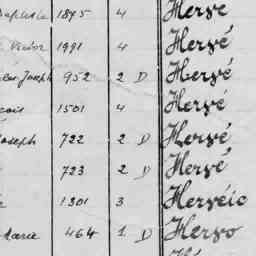 1875 4 Hervé
Victor 1991 4 Hervé
Joseph 952 2 D Hervé
1501 4 Hervé
Joseph 722 2 D Hervé
723 2 D Hervé
1301 3 Herveic
Marie 464 1 D Hervo